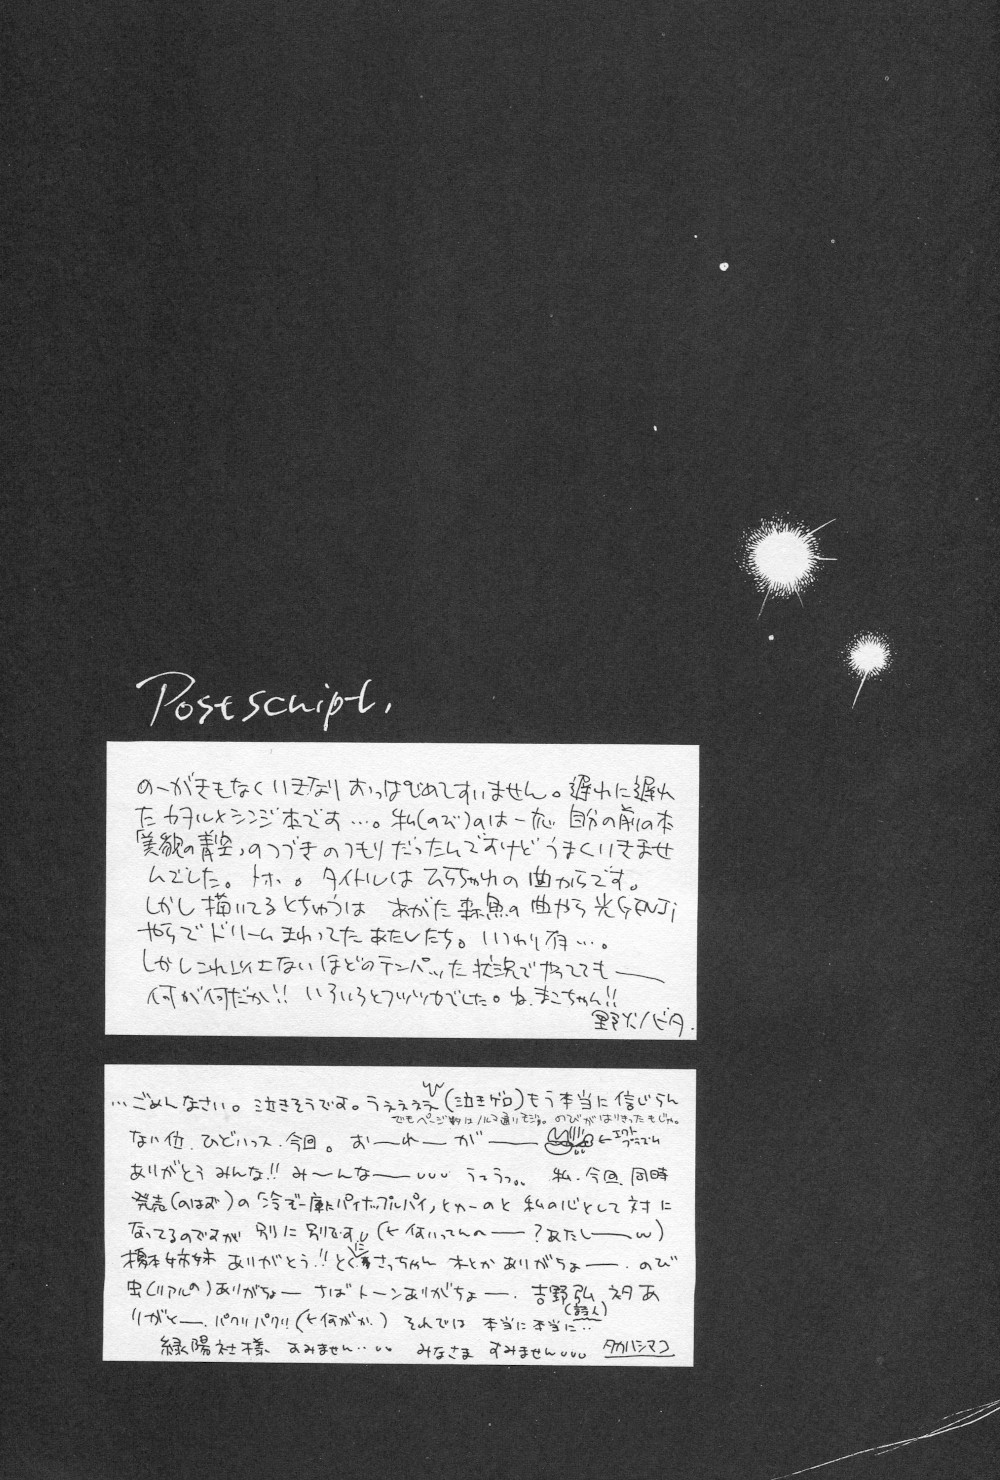 Postscript.
のーがきもなくいきなりおっぱじめてすいません。遅れに遅れ
たカヲル×シンジ本です…。私(のび)のは一応 自分の前の本
「美貌の青空」のつづきのつもりだったんですけど うまくいきませ
んでした。トホ。。タイトルは の曲からです。
しかし描いてるとちゅうは あがた森魚の曲やら光GENJi
やらでドリームまわってたあたしたち。 …。
しかしこれ以上ないほどのテンパッた状況でやってても——
何が何だか!! いろいろとフツツカでした。ね、まこちゃん!!
野火ノビタ.
…ごめんなさい。泣きそうです。うぇぇぇぇ(泣きゲロ)もう本当に信じらん
でもページ数はノルマ通り のびがはりきったもじゃ。
ない位、ひどいっス、今回。お—れ—が——
ありがとうみんな!! み〜んな— うっうっ。。 私、今回、同時
発売(のはず)の「冷ぞー庫にパイナップルパイ」とかーのと 私の心として対に
なってるのですが 別に別です (←何いってんへ——?あたし——)
橋本姉妹 ありがとう!!とくに さっちゃん ありがちょー。のび
虫(リアルの)ありがちょー さばトーンありがちょー、吉野弘 ネタあ
(詩人)
りがとー、パクリパクリ(←何がか。) それでは 本当に本当に…
緑陽社様、すみません… みなさま すみません タカハシマコ